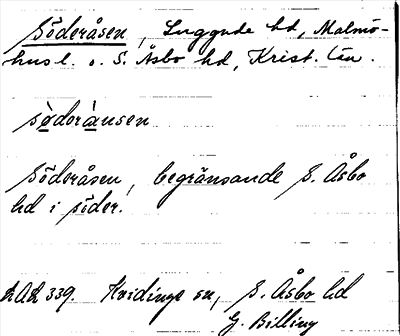 Söderåsen, Luggude hd, Malmö-
hus l. o. S. Åsbo hd, Krist. län.
södoràusen
Söderåsen, begränsande S. Åsbo
hd i söder.
LAL 339. Hvidinge sn, S. Åsbo hd
G. Billing